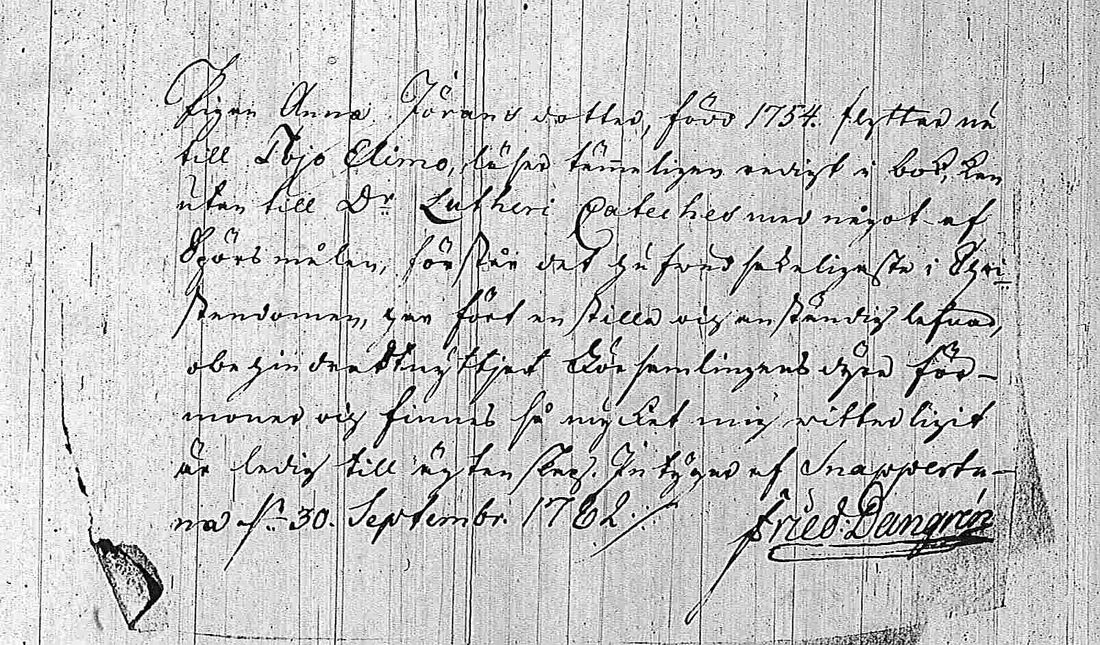 Pigan Anna Jörans dotter, född 1754. flyttar nu
till Pojo Elimo, läser temmeligen redigt i bok, kan
utan till Dr Lutheri Cateches med något af
Spörsmålen, förstår det hufvudsakeligaste i Chri=
stendomen, har fört en stilla och anständig lefnad,
obehindrat nyttjat Församlingens dyra för-
moner och finnes så mycket mig witterligit
är ledig till ägtenskap. Intygar af Snappertu-
na d. 30. Septembr. 1782.
Fried. Dangrén